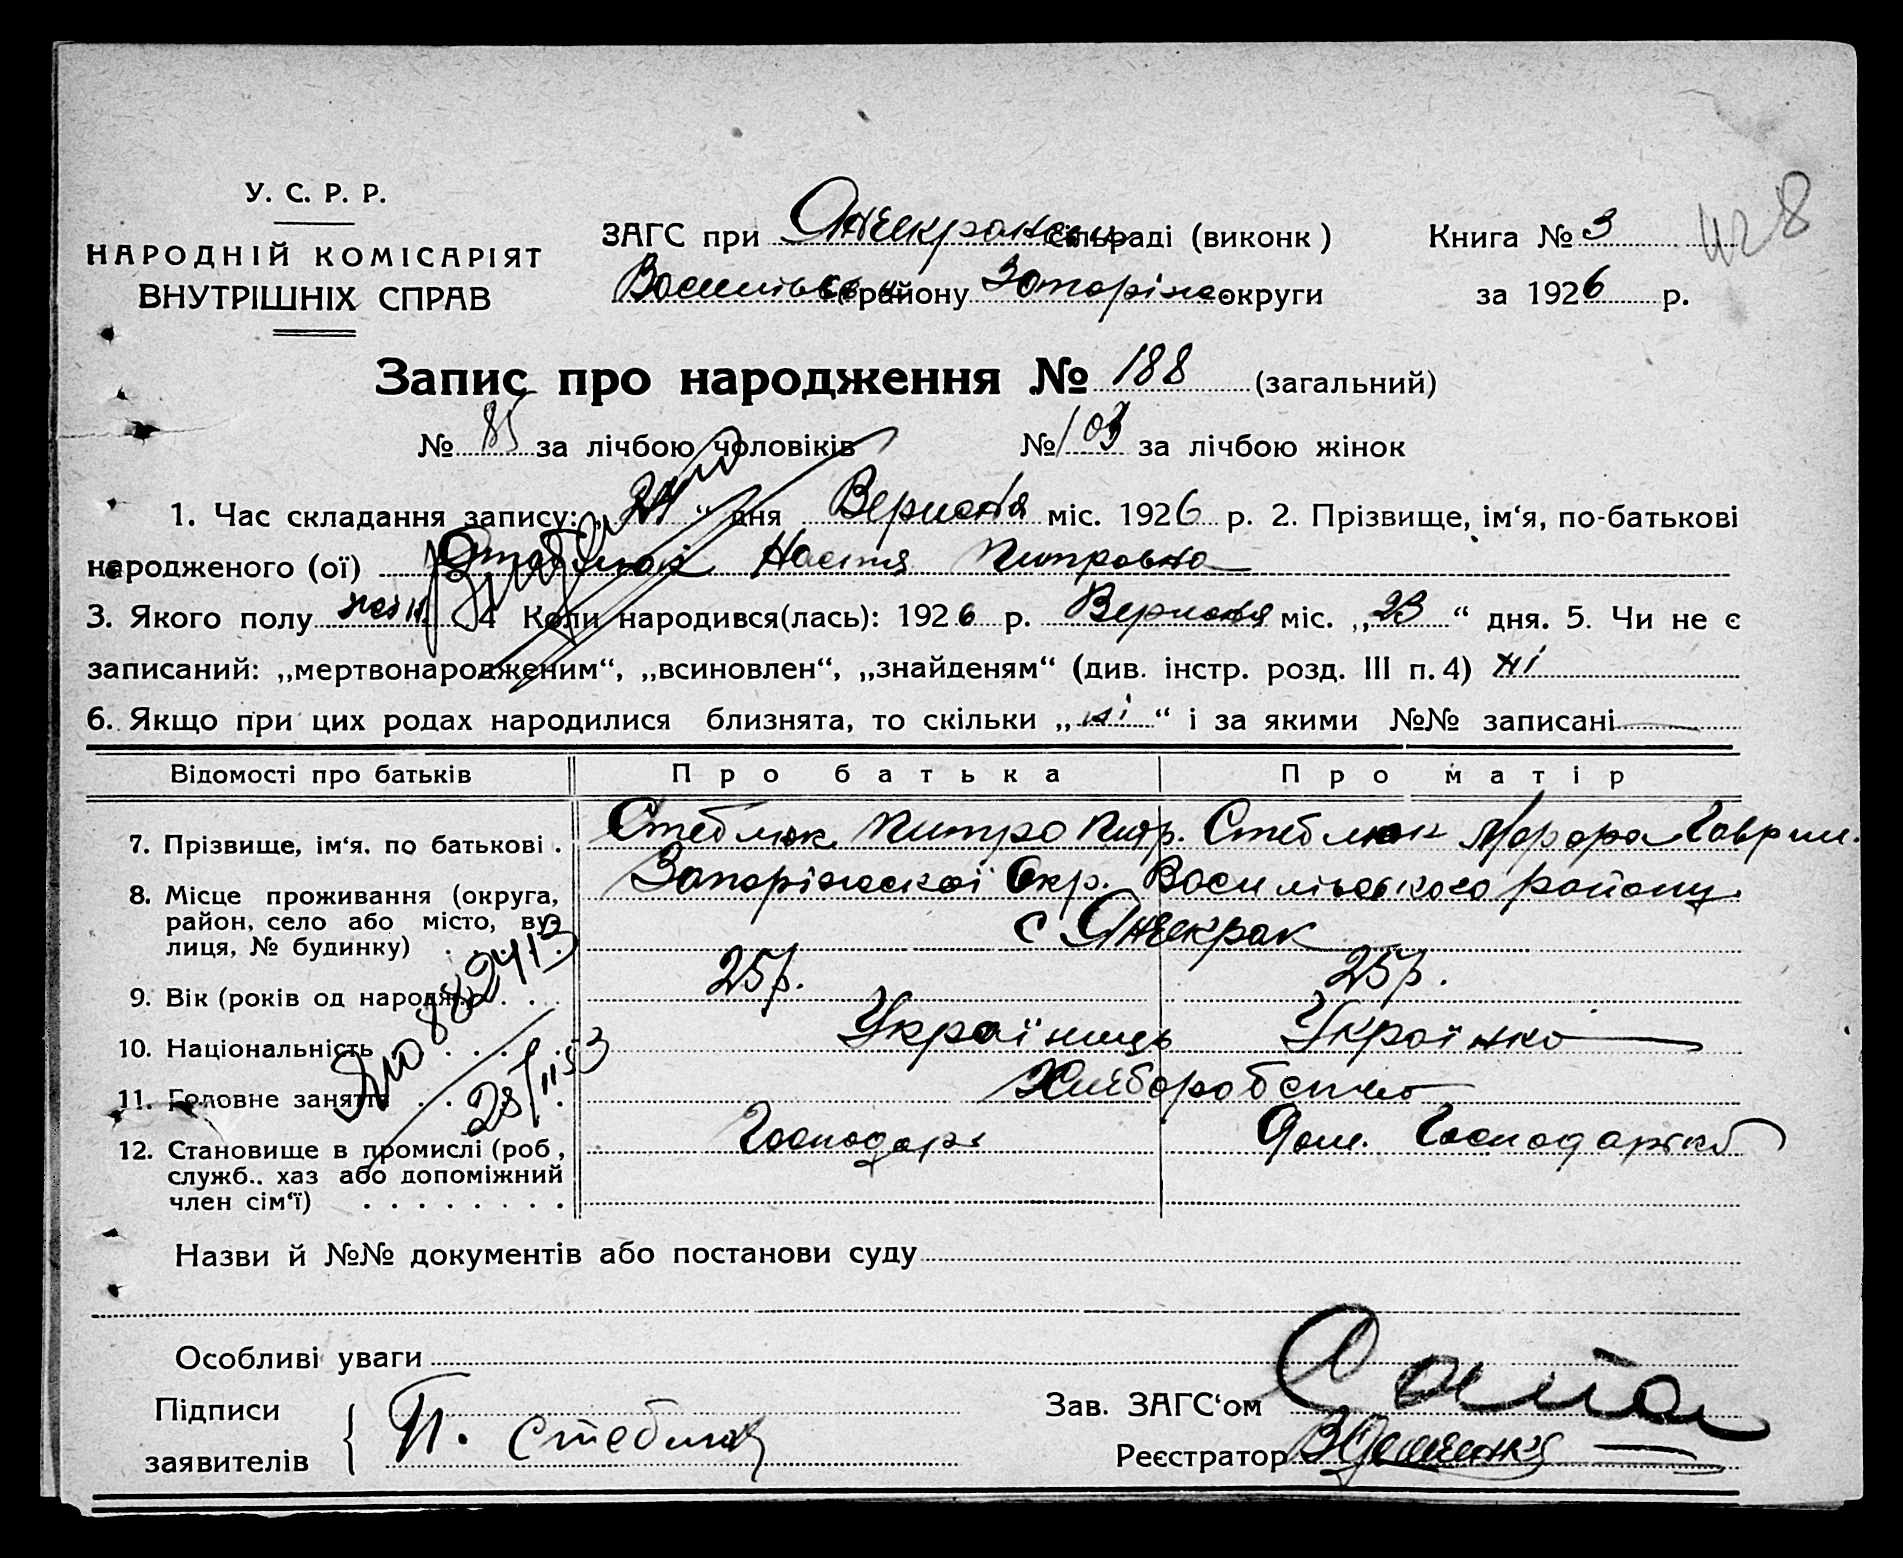 У. С. Р. Р.
НАРОДНІЙ КОМІСАРІЯТ
ВНУТРІШНІХ СПРАВ
ЗАГС при Янчекракськ сільраді (виконк)
Книга № 3
Василівськ району Запоріжс округи
за 1926 р.
Запис про народження № 188 (загальний)
№ 85 за лічбою чоловіків № 103 за лічбою жінок
1. Час складання запису: „24“ дня Вересня міс. 1926 р. 2. Прізвище, ім‘я, по-батькові
народженого (ої) Стеблюк Настя Питровна
3. Якого полу жін. 4 Коли народився(лась): 1926 р. Вересня міс. „23“ дня. 5. Чи не є
записаний: „мертвонародженим“, „всиновлен“, „знайденям“ (див. інстр. розд. III п. 4) ні
6. Якщо при цих родах народилися близнята, то скільки „ні“ і за якими №№ записані —
Відомості про батьків Про батька Про матір
7. Прізвище, ім‘я, по батькові . Стеблюк Питро Питр. Стеблюк Гаврил.
8. Місце проживання (округа, район, село або місто, вулиця, № будинку) Запоріжської Окр. Василівського району
с Янчекрак
9. Вік (років од народж.) 25р. 25р.
10. Національність Українець Українка
11. Головне заняття Хліборобство
12. Становище в промислі (роб, служб.. хаз або допоміжний член сім‘ї) Господарь Дом. Господарка
882413
28/II 53
Назви й №№ документів або постанови суду
Особливі уваги
Підписи заявителів П. Стеблюк
Зав. ЗАГС‘ом
Реєстратор